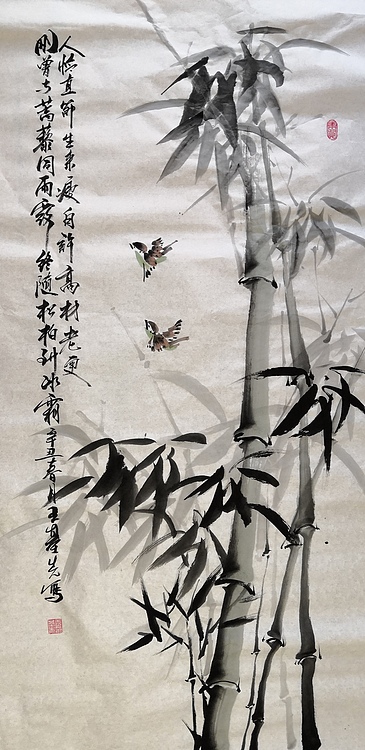 人憐直節生来瘦自許高材老更
剛曾与蒿藜同雨露终随松柏到冰霜辛丑春月王基先寫